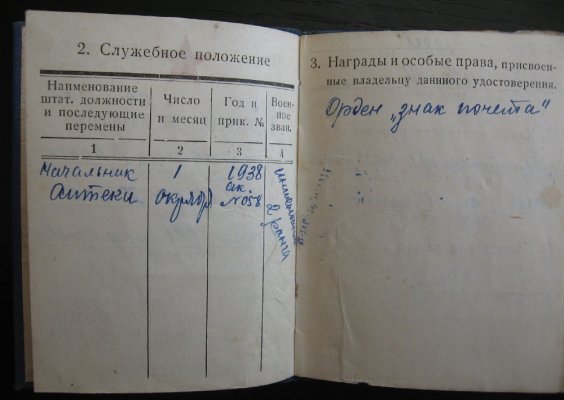 2. Служебное положение
Наименование
штат. должности
и последующие
перемены
Число
и месяц
Год и
прик. №
Воен-
ное
зван.
1
2
3
4
Начальник
1
1938
Аптеки
октября
№ 058
2 ранга
3. Награды и особые права, присвоен-
ные владельцу даннного удостоверения.
Орден „знак почета“